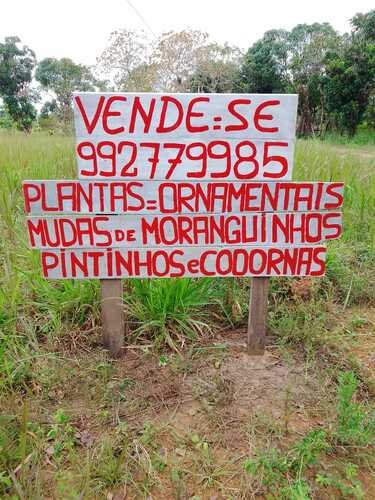 VENDE=SE
992779985
PLANTAS=ORNAMENTAIS
MUDAS DE MORANGUINHOS
PINTINHOS e CODORNAS